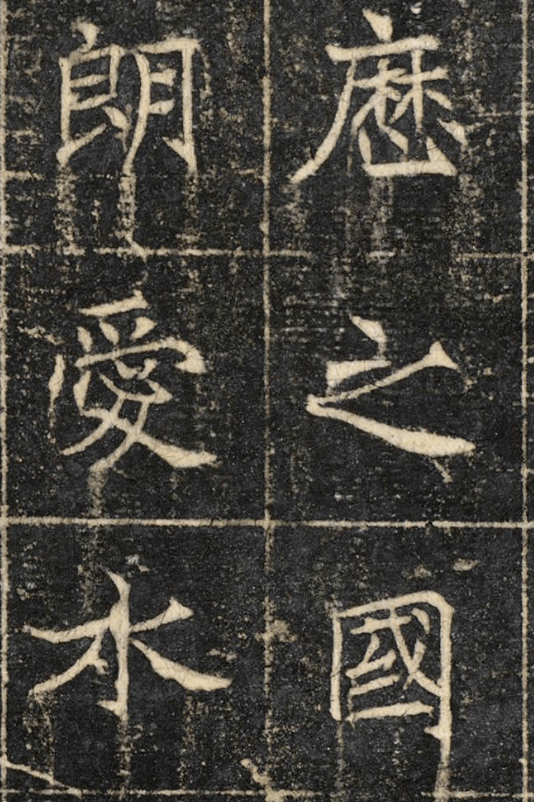 歷之國
朗愛水